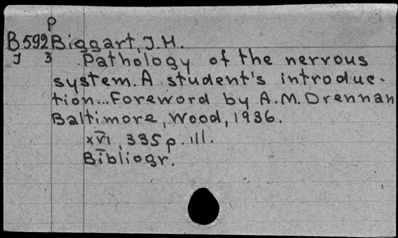 P
B592 Biggart, J.H.
J 3 Pathology of the nervous
system. A student's introduc-
tion...Foreword by A.M.Drennan
Baltimore, Wood, 1936.
xvi, 335 p. ill.
Bibliogr.